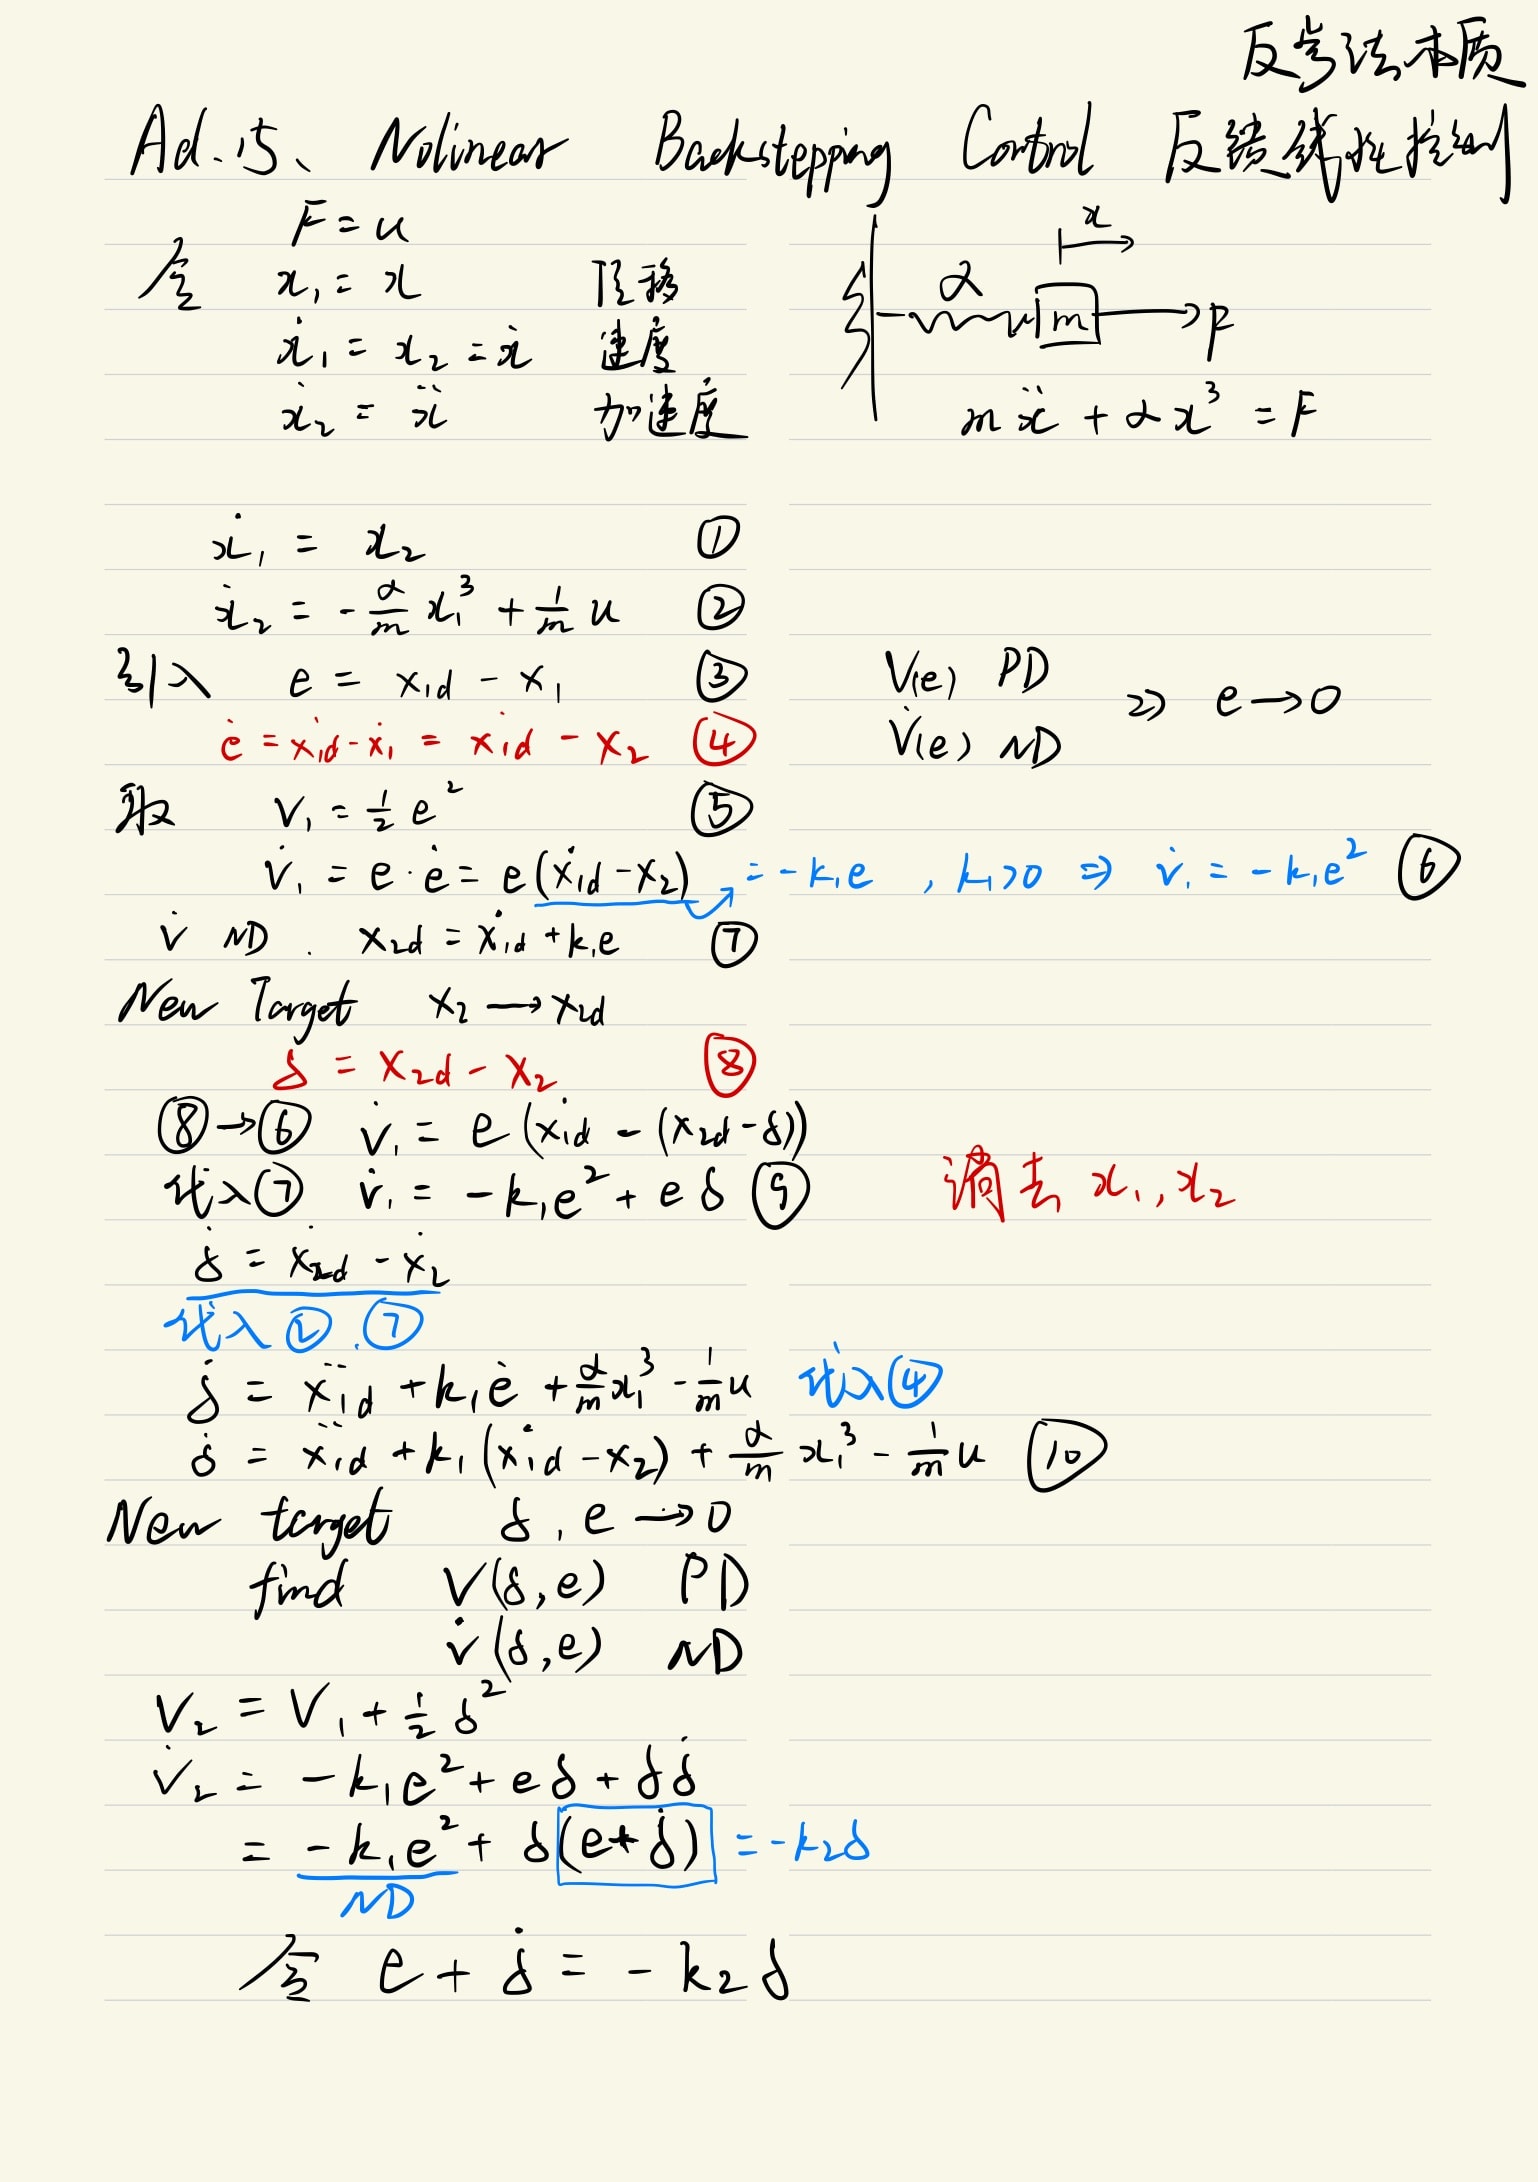 反步法本质
Ad.15、 Nolinear Backstepping Control 反馈线性控制
F = u
令 x₁ = x 位移
ẋ₁ = x₂ = ẋ 速度
ẋ₂ = ẍ 加速度
x
α
m
F
mẍ + αx³ = F
ẋ₁ = x₂ ①
ẋ₂ = -α/m x₁³ + 1/m u ②
引入 e = x₁d - x₁ ③
ė = ẋ₁d - ẋ₁ = ẋ₁d - x₂ ④
V(e) PD
V̇(e) ND
⇒ e → 0
取 V₁ = 1/2 e² ⑤
V̇₁ = e·ė = e(ẋ₁d - x₂) = -k₁e , k₁>0 ⇒ V̇₁ = -k₁e² ⑥
V̇ ND . x₂d = ẋ₁d + k₁e ⑦
New Target x₂ → x₂d
δ = x₂d - x₂ ⑧
⑧→⑥ V̇₁ = e(ẋ₁d - (x₂d - δ))
代入⑦ V̇₁ = -k₁e² + eδ ⑨
消去 x₁, x₂
δ̇ = ẋ₂d - ẋ₂
代入②.⑦
δ̇ = ẍ₁d + k₁ė + α/m x₁³ - 1/m u 代入④
δ̇ = ẍ₁d + k₁(ẋ₁d - x₂) + α/m x₁³ - 1/m u ⑩
New target δ, e → 0
find V(δ,e) PD
V̇(δ,e) ND
V₂ = V₁ + 1/2 δ²
V̇₂ = -k₁e² + eδ + δδ̇
= -k₁e² + δ(e+δ̇) = -k₂δ
ND
令 e + δ̇ = -k₂δ